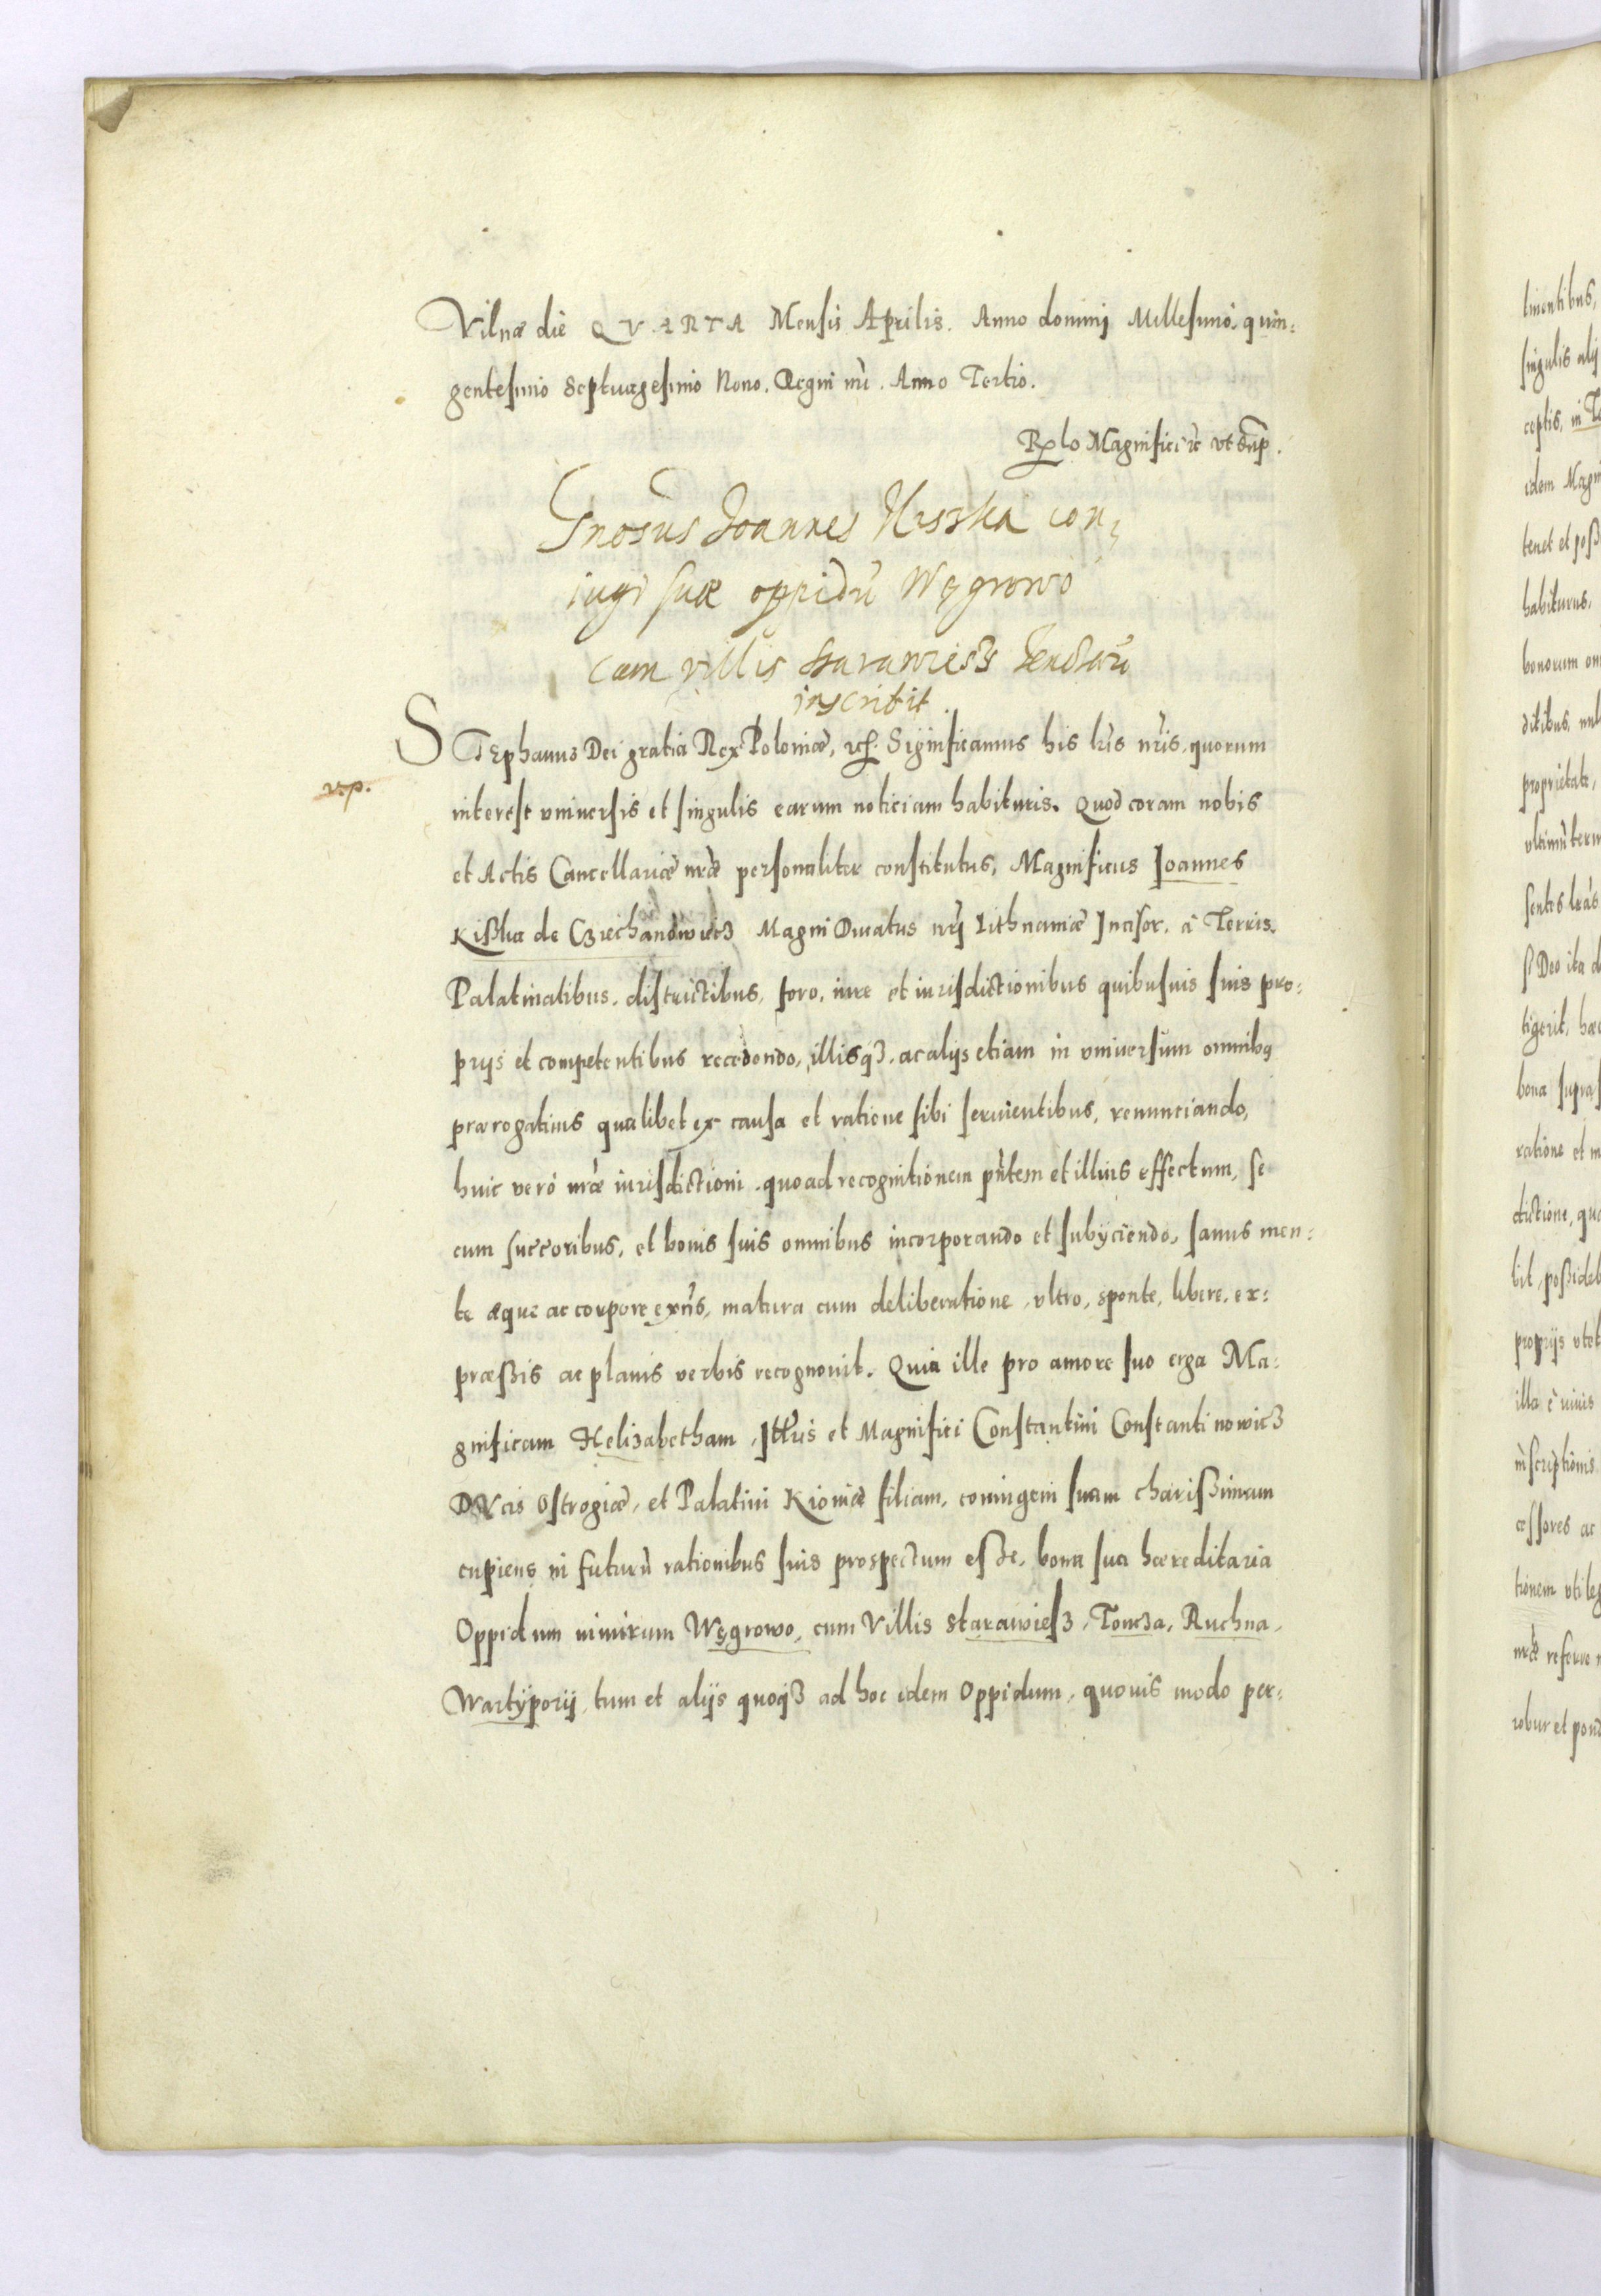 Vilnæ die QVARTA Mensis Aprilis. Anno dominj Millesimo quin:
gentesimo Septuagesimo Nono. Regni nri. Anno Tertio.
Rlo Magnifici etc vt Sup.
Gnosus Joannes Kiszka con
iugi suæ oppidũ Węgrowo
cum villis Starawiesz
inscribit.
STEphanus Dei gratia Rex Poloniæ, etc. Significamus his lris nris. quorum
v.p.
interest vniuersis et singulis earum noticiam habituris. Quod coram nobis
et Actis Cancellariæ nræ personaliter constitutus, Magnificus Joannes
Kißka de Czechanowicz Magni Ducatus nrj Lithuaniæ Incisor. à Terris.
Palatinatibus. districtibus, foro, iure et iurisdictionibus quibusuis suis pro:
prijs et competentibus recedendo, illisq3. ac alijs etiam in vniuersum omnibq
prærogatiuis qualibet ex causa et ratione sibi seruientibus, renunciando,
huic verò nræ iurisdictioni. quoad recognitionem pntem et illius effectum, se
cum succoribus, et bonis suis omnibus incorporando et subijciendo, sanus men:
te æque ac corpore exns, matura cum deliberatione, vltro, sponte, libere, ex:
præßis ac planis verbis recognouit. Quia ille pro amore suo erga Ma:
gnificam Helizabetham, Jllris et Magnifici Constantini Constantinowicz
DVcis Ostrogiæ, et Palatini Kiouiæ filiam, coniugem suam charißimam
cupiens in futurũ rationibus suis prospectum eße, bona sua hæreditaria
Oppidum nimirum Węgrowo, cum Villis Starawiesz, Toncza, Ruchna,
Wartÿporij, tum et alijs quoq3 ad hoc idem Oppidum, quouis modo per: